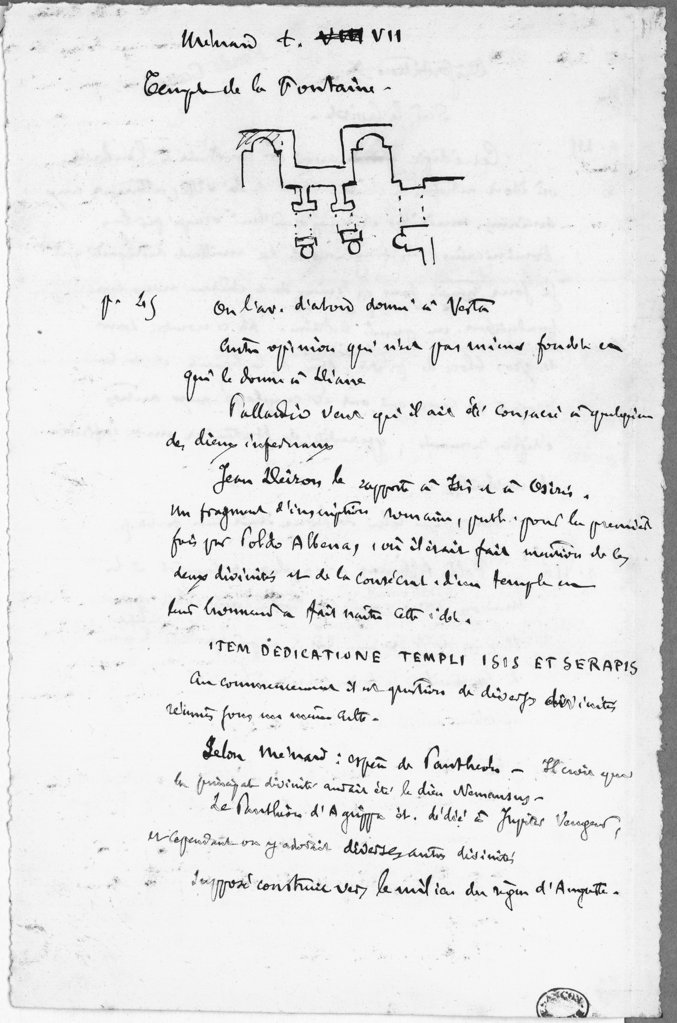 Ménard t. VIII VII
Temple de la Fontaine -
p. 45 On l'av. d'abord donné à Vesta
Autre opinion qui n'est pas mieux fondée en
qui le donne à Diane
Palladio veut qu'il ait été consacré à quelqu'un
des dieux infernaux
Jean Deiron le rapporte à Isis et à Osiris.
Un fragment d'inscription romaine, publ. pour la première
fois par Poldo Albenas, où il était fait mention de ces
deux divinités et de la consécrat. d'un temple en
leur honneur a fait naître cette idée.
ITEM DEDICATIONE TEMPLI ISIS ET SERAPIS
Au commencement il est question de diverses divinités
réunies sous un même culte.
Selon Ménard : espèce de Panthéon - Il croit que
la principale divinité aurait été le dieu Nemausus -
Le Panthéon d'Agrippa ét. dédié à Jupiter Vengeur,
et cependant on y adorait diverses autres divinités
Supposé construit vers le milieu du règne d'Auguste.